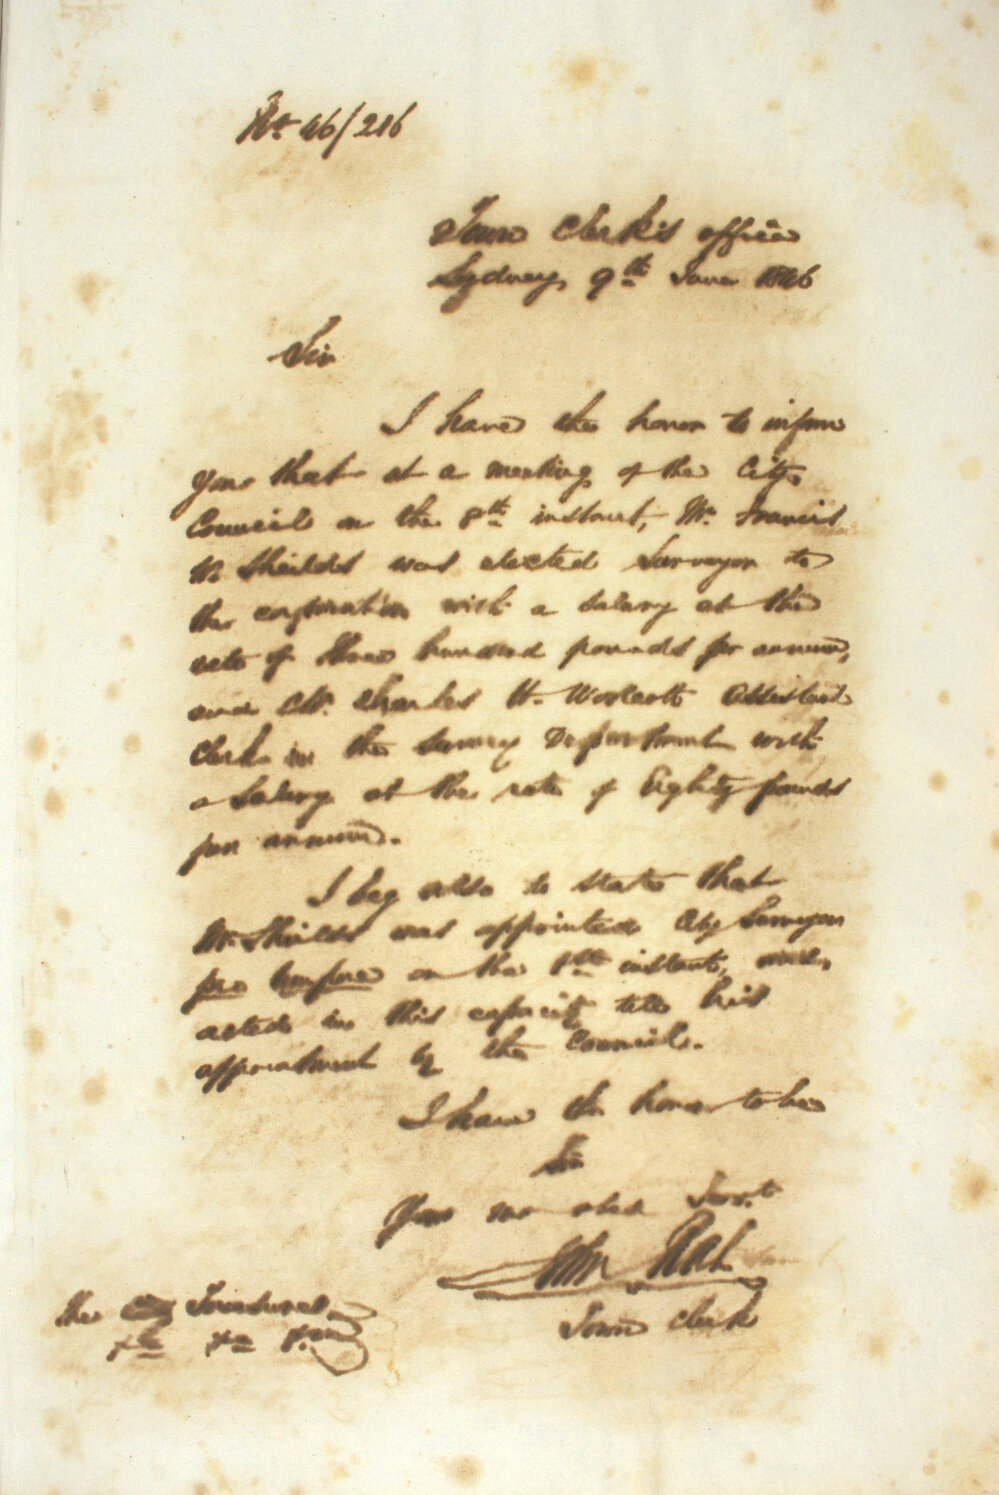 No. 46/216
Town Clerk's Office
Sydney, 9th June 1846
Sir
I have the honor to inform
you that at a meeting of the City
Council on the 8th instant, Mr. Francis
W Sheilds was elected Surveyor to
the corporation with a salary at the
rate of three hundred pounds per annum,
and Mr. Charles H. Woolcott Assistant
Clerk in the Survey Department with
a Salary at the rate of Eighty pounds
per annum.
I beg also to state that
Mr. Sheilds was appointed City Surveyor
pro tempore on the 1st instant, and
acted in this capacity till his
appointment by the Council.
I have the honor to be
Sir
Your mo obed Servt
Wm
Town Clerk
The City Treasurer